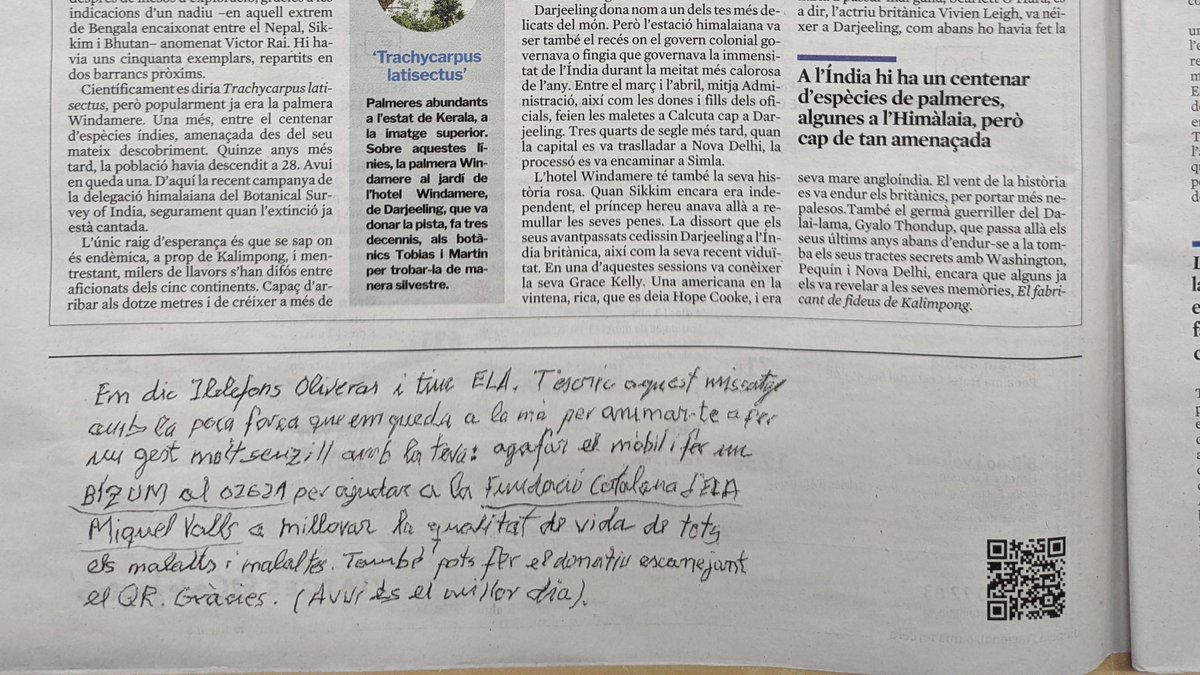 indicacions d'un nadiu –en aquell extrem
de Bengala encaixonat entre el Nepal, Sik-
kim i Bhutan– anomenat Victor Rai. Hi ha-
via uns cinquanta exemplars, repartits en
dos barrancs pròxims.
Científicament es diria Trachycarpus lati-
sectus, però popularment ja era la palmera
Windamere. Una més, entre el centenar
d'espècies índies, amenaçada des del seu
mateix descobriment. Quinze anys més
tard, la població havia descendit a 28. Avui
en queda una. D'aquí la recent campanya de
la delegació himalaiana del Botanical Sur-
vey of India, segurament quan l'extinció ja
està cantada.
L'únic raig d'esperança és que se sap on
és endèmica, a prop de Kalimpong, i men-
trestant, milers de llavors s'han difós entre
aficionats dels cinc continents. Capaç d'ar-
ribar als dotze metres i de créixer a més de
'Trachycarpus
latisectus'
Palmeres abundants
a l'estat de Kerala, a
la imatge superior.
Sobre aquestes lí-
nies, la palmera Win-
damere al jardí de
l'hotel Windamere,
de Darjeeling, que va
donar la pista, fa tres
decennis, als botà-
nics Tobias i Martin
per trobar-la de ma-
nera silvestre.
Darjeeling dona nom a un dels tes més de-
licats del món. Però l'estació himalaiana va
ser també el recés on el govern colonial go-
vernava o fingia que governava la immensi-
tat de l'Índia durant la meitat més calorosa
de l'any. Entre el març i l'abril, mitja Admi-
nistració, així com les dones i fills dels ofi-
cials, feien les maletes a Calcuta cap a Dar-
jeeling. Tres quarts de segle més tard, quan
la capital es va traslladar a Nova Delhi, la
processó es va encaminar a Simla.
L'hotel Windamere té també la seva his-
tòria rosa. Quan Sikkim encara era inde-
pendent, el príncep hereu anava allà a re-
mullar les seves penes. La dissort que els
seus avantpassats cedissin Darjeeling a l'Ín-
dia britànica, així com la seva recent viduï-
tat. En una d'aquestes sessions va conèixer
la seva Grace Kelly. Una americana en la
vintena, rica, que es deia Hope Cooke, i era
a dir, l'actriu britànica Vivien Leigh, va néi-
xer a Darjeeling, com abans ho havia fet la
A l'Índia hi ha un centenar
d'espècies de palmeres,
algunes a l'Himàlaia, però
cap de tan amenaçada
seva mare angloíndia. El vent de la història
es va endur els britànics, per portar més ne-
palesos.També el germà guerriller del Da-
lai-lama, Gyalo Thondup, que passa allà els
seus últims anys abans d'endur-se a la tom-
ba els seus tractes secrets amb Washington,
Pequín i Nova Delhi, encara que alguns ja
els va revelar a les seves memòries, El fabri-
cant de fideus de Kalimpong.
Em dic Ildefons Oliveras i tinc ELA. T'escric aquest missatge
amb la poca força que em queda a la mà per animar-te a fer
un gest molt senzill amb la teva: agafar el mòbil i fer un
BIZUM al 02621 per ajudar a la Fundació Catalana d'ELA
Miquel Valls a millorar la qualitat de vida de tots
els malalts i malaltes. També pots fer el donatiu escanejant
el QR. Gràcies. (Avui és el millor dia).